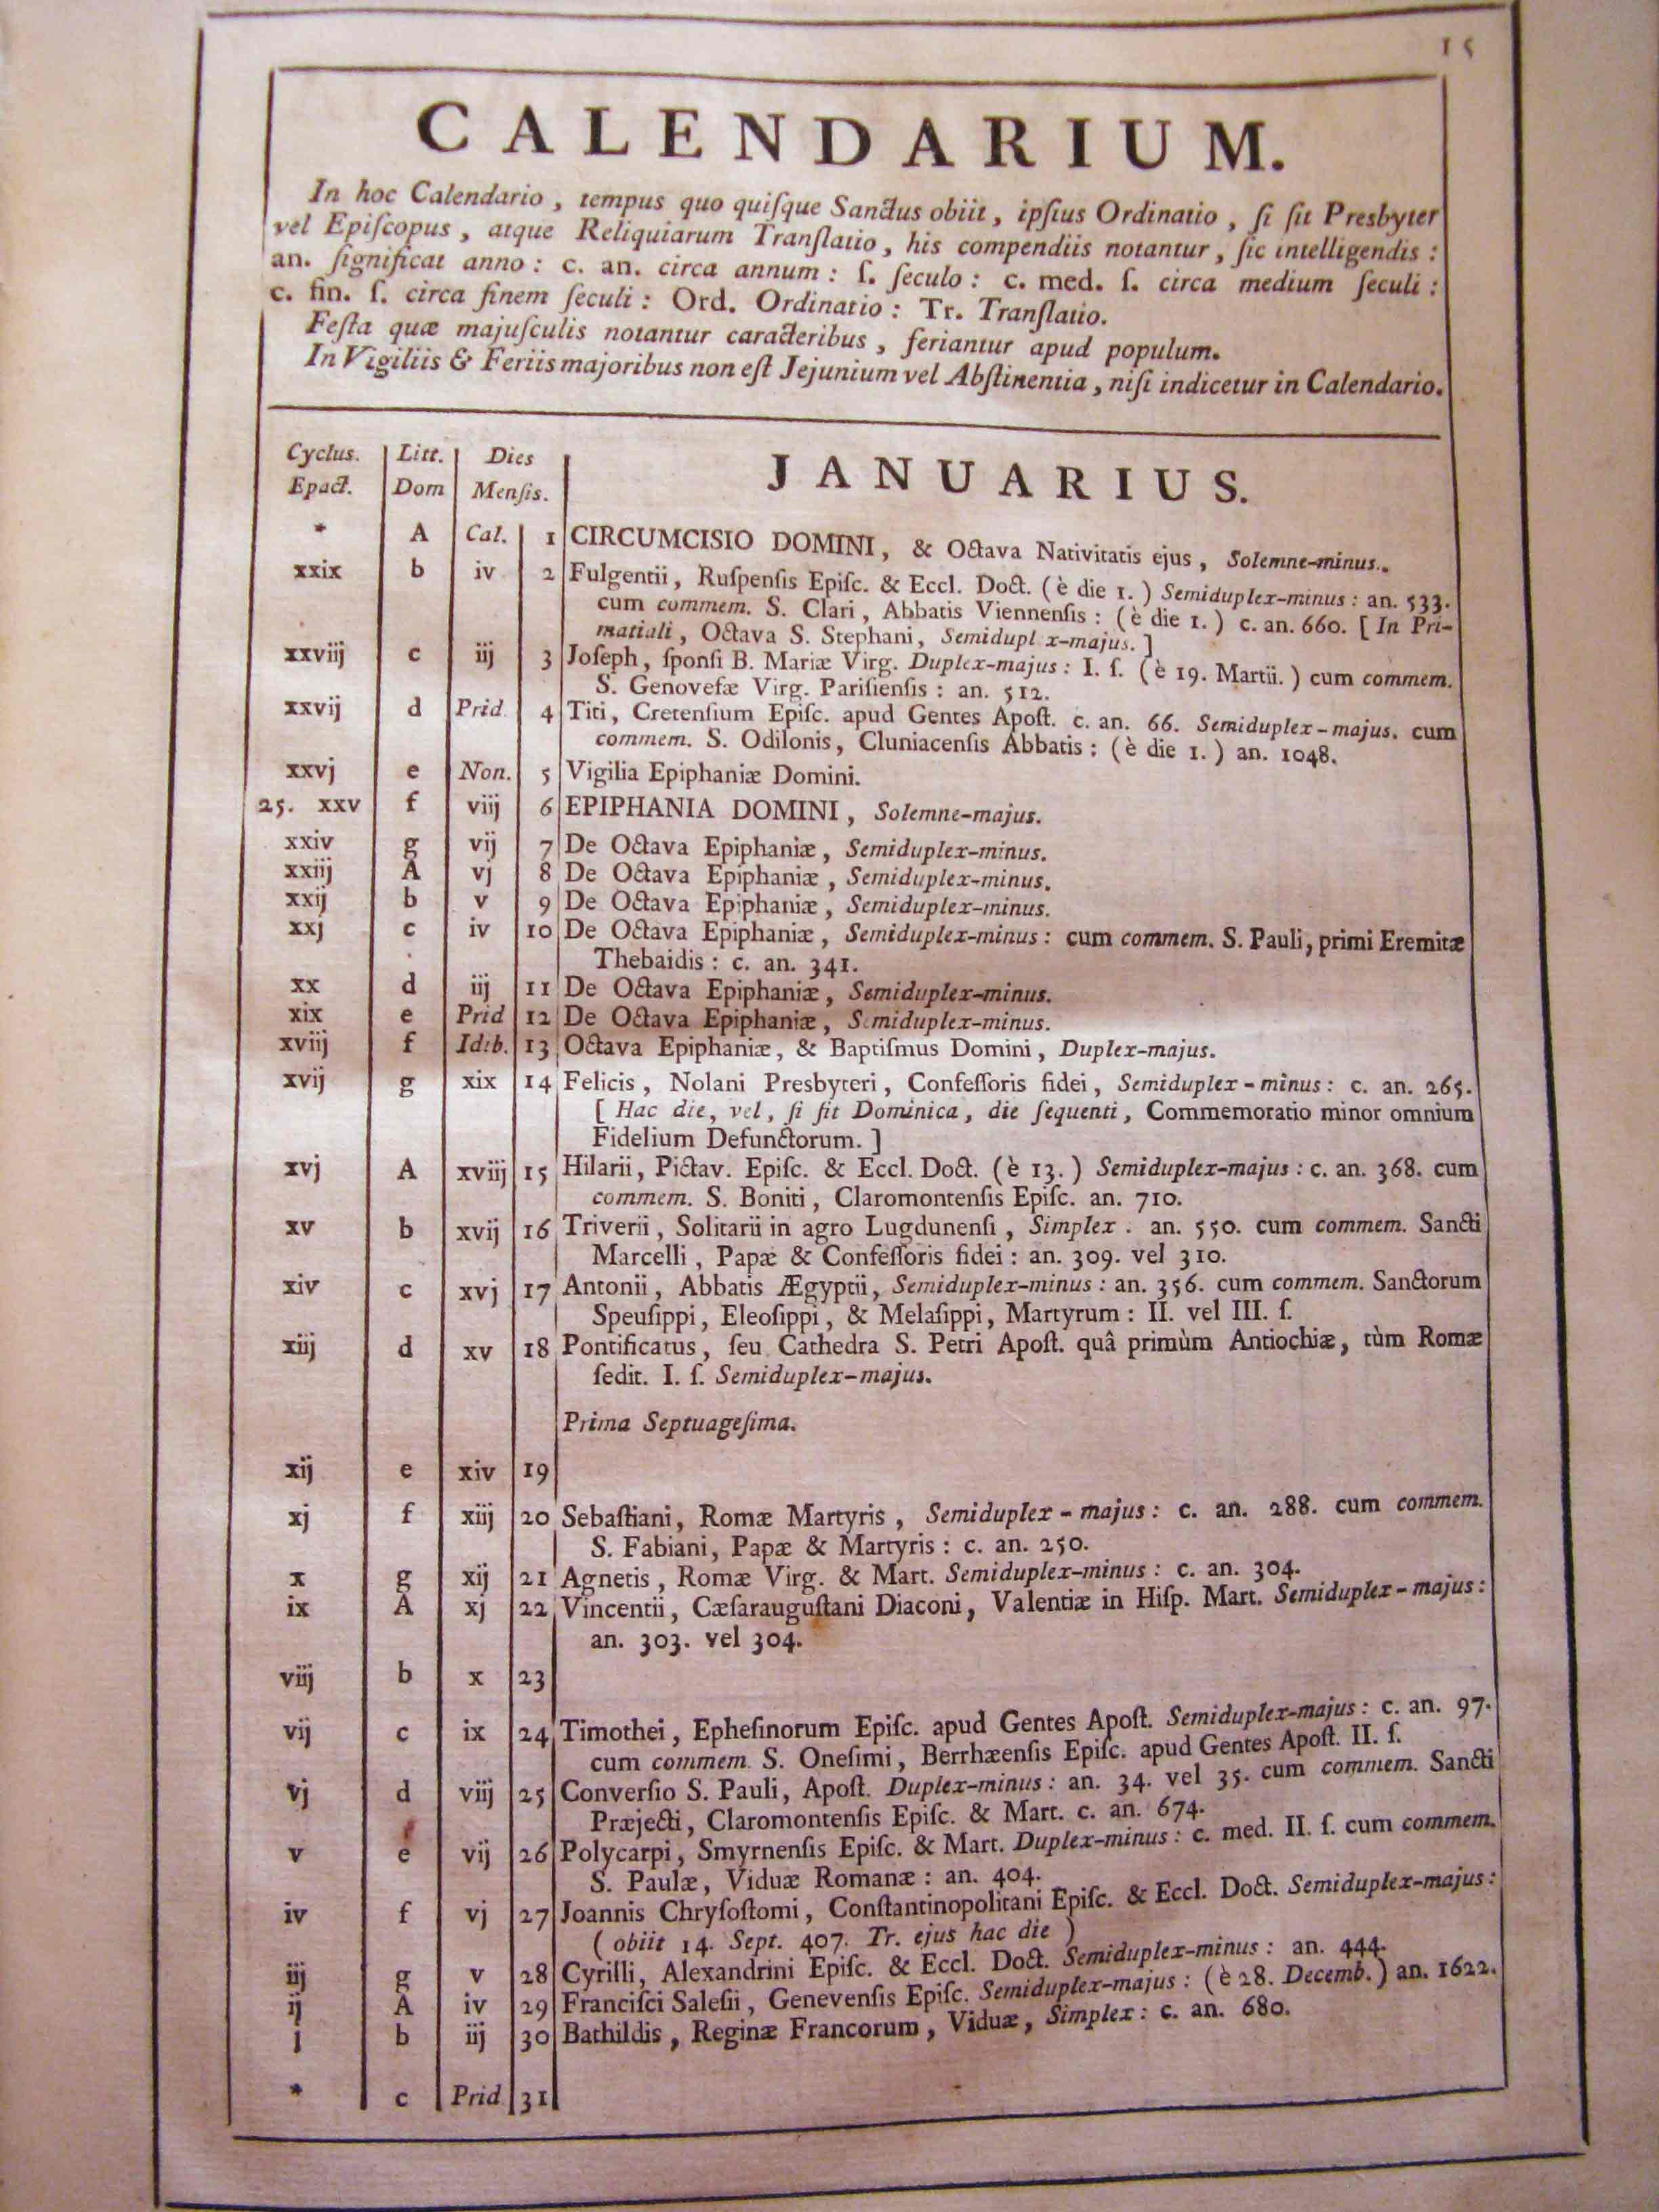 15
CALENDARIUM.
In hoc Calendario, tempus quo quiſque Sanctus obiit, ipſius Ordinatio, ſi ſit Presbyter
vel Epiſcopus, atque Reliquiarum Tranſlatio, his compendiis notantur, ſic intelligendis:
an. ſignificat anno: c. an. circa annum: ſ. ſeculo: c. med. ſ. circa medium ſeculi:
c. fin. ſ. circa finem ſeculi: Ord. Ordinatio: Tr. Tranſlatio.
Feſta quæ majuſculis notantur caracteribus, feriantur apud populum.
In Vigiliis & Feriis majoribus non eſt Jejunium vel Abſtinentia, niſi indicetur in Calendario.
Cyclus. Litt. Dies
Epact. Dom Menſis.
JANUARIUS.
* A Cal. 1 CIRCUMCISIO DOMINI, & Octava Nativitatis ejus, Solemne-minus.
xxix b iv 2 Fulgentii, Ruſpenſis Epiſc. & Eccl. Doct. (è die 1.) Semiduplex-minus: an. 533.
cum commem. S. Clari, Abbatis Viennenſis: (è die 1.) c. an. 660. [In Pri-
matiali, Octava S. Stephani, Semidupl x-majus.]
xxviij c iij 3 Joſeph, ſponſi B. Mariæ Virg. Duplex-majus: I. ſ. (è 19. Martii.) cum commem.
S. Genovefæ Virg. Pariſienſis: an. 512.
xxvij d Prid 4 Titi, Cretenſium Epiſc. apud Gentes Apoſt. c. an. 66. Semiduplex-majus. cum
commem. S. Odilonis, Cluniacenſis Abbatis: (è die 1.) an. 1048.
xxvj e Non. 5 Vigilia Epiphaniæ Domini.
25. xxv f viij 6 EPIPHANIA DOMINI, Solemne-majus.
xxiv g vij 7 De Octava Epiphaniæ, Semiduplex-minus.
xxiij A vj 8 De Octava Epiphaniæ, Semiduplex-minus.
xxij b v 9 De Octava Epiphaniæ, Semiduplex-minus.
xxj c iv 10 De Octava Epiphaniæ, Semiduplex-minus: cum commem. S. Pauli, primi Eremitæ
Thebaidis: c. an. 341.
xx d iij 11 De Octava Epiphaniæ, Semiduplex-minus.
xix e Prid 12 De Octava Epiphaniæ, Semiduplex-minus.
xviij f Idib. 13 Octava Epiphaniæ, & Baptiſmus Domini, Duplex-majus.
xvij g xix 14 Felicis, Nolani Presbyteri, Confeſſoris fidei, Semiduplex-minus: c. an. 265.
[Hac die, vel, ſi ſit Dominica, die ſequenti, Commemoratio minor omnium
Fidelium Defunctorum.]
xvj A xviij 15 Hilarii, Pictav. Epiſc. & Eccl. Doct. (è 13.) Semiduplex-majus: c. an. 368. cum
commem. S. Boniti, Claromontenſis Epiſc. an. 710.
xv b xvij 16 Triverii, Solitarii in agro Lugdunenſi, Simplex. an. 550. cum commem. Sancti
Marcelli, Papæ & Confeſſoris fidei: an. 309. vel 310.
xiv c xvj 17 Antonii, Abbatis Ægyptii, Semiduplex-minus: an. 356. cum commem. Sanctorum
Speuſippi, Eleoſippi, & Melaſippi, Martyrum: II. vel III. ſ.
xiij d xv 18 Pontificatus, ſeu Cathedra S. Petri Apoſt. quâ primùm Antiochiæ, tùm Romæ
ſedit. I. ſ. Semiduplex-majus.
Prima Septuageſima.
xij e xiv 19
xj f xiij 20 Sebaſtiani, Romæ Martyris, Semiduplex-majus: c. an. 288. cum commem.
S. Fabiani, Papæ & Martyris: c. an. 250.
x g xij 21 Agnetis, Romæ Virg. & Mart. Semiduplex-minus: c. an. 304.
ix A xj 22 Vincentii, Cæſarauguſtani Diaconi, Valentiæ in Hiſp. Mart. Semiduplex-majus:
an. 303. vel 304.
viij b x 23
vij c ix 24 Timothei, Epheſinorum Epiſc. apud Gentes Apoſt. Semiduplex-majus: c. an. 97.
cum commem. S. Oneſimi, Berrhæenſis Epiſc. apud Gentes Apoſt. II. ſ.
vj d viij 25 Converſio S. Pauli, Apoſt. Duplex-minus: an. 34. vel 35. cum commem. Sancti
Præjecti, Claromontenſis Epiſc. & Mart. c. an. 674.
v e vij 26 Polycarpi, Smyrnenſis Epiſc. & Mart. Duplex-minus: c. med. II. ſ. cum commem.
S. Paulæ, Viduæ Romanæ: an. 404.
iv f vj 27 Joannis Chryſoſtomi, Conſtantinopolitani Epiſc. & Eccl. Doct. Semiduplex-majus:
(obiit 14. Sept. 407. Tr. ejus hac die)
iij g v 28 Cyrilli, Alexandrini Epiſc. & Eccl. Doct. Semiduplex-minus: an. 444.
ij A iv 29 Franciſci Saleſii, Genevenſis Epiſc. Semiduplex-majus: (è 28. Decemb.) an. 1622.
j b iij 30 Bathildis, Reginæ Francorum, Viduæ, Simplex: c. an. 680.
* c Prid 31